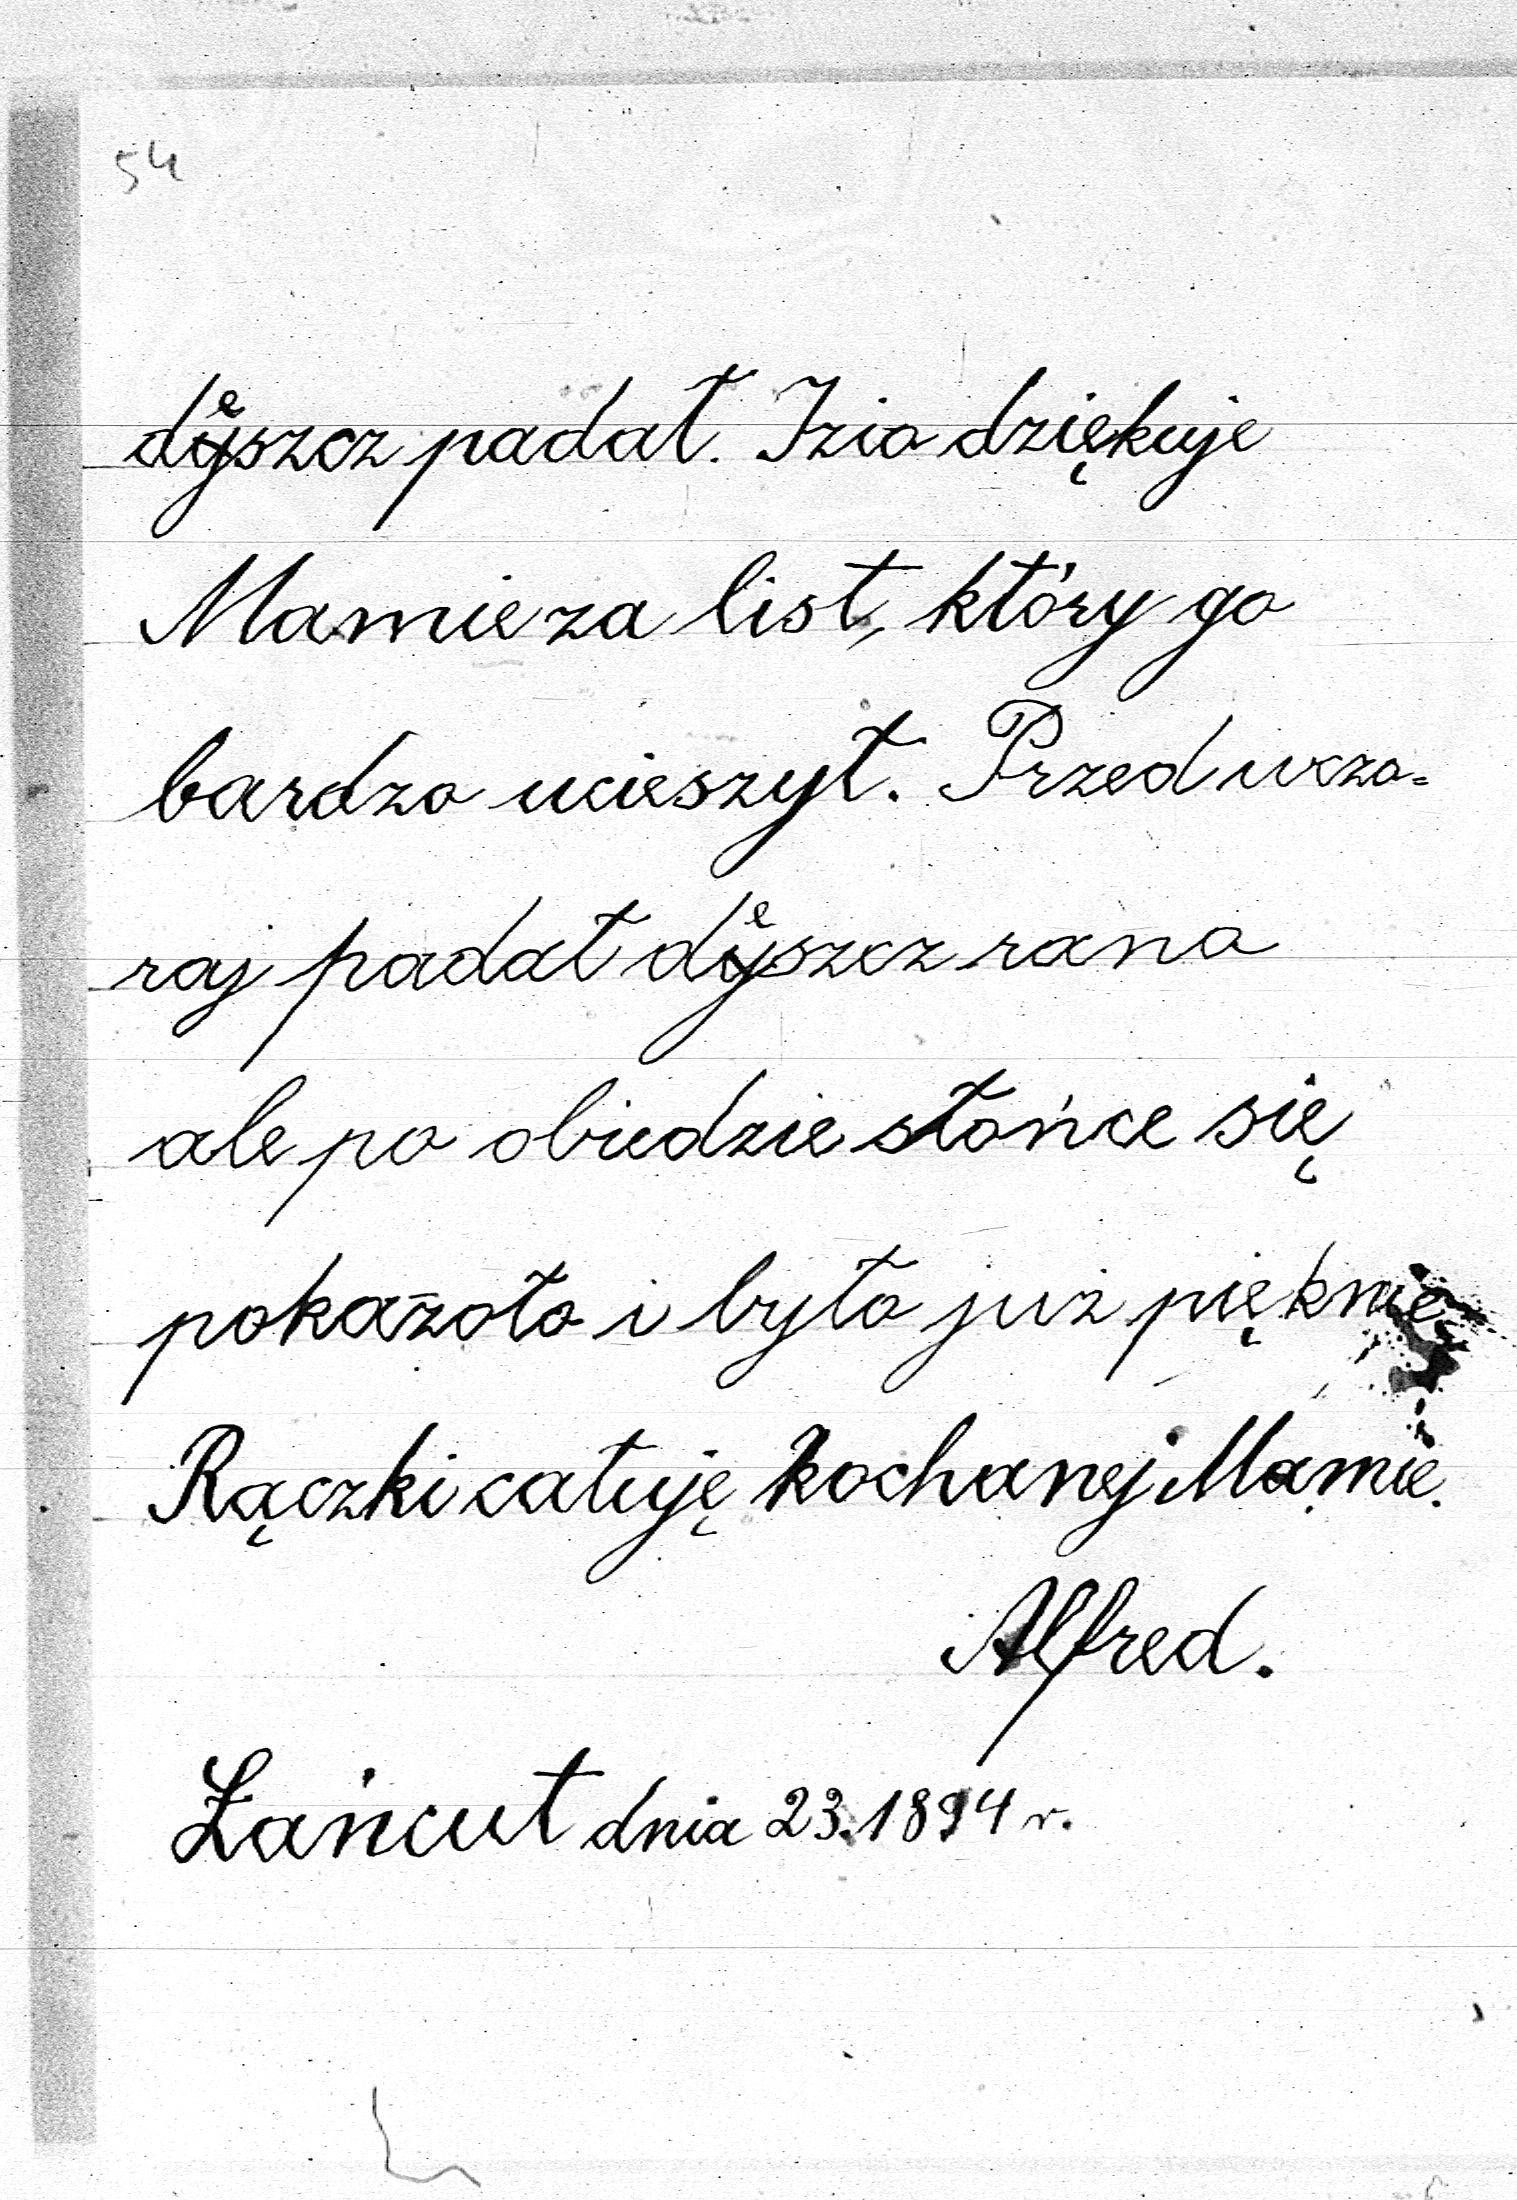 54
deszcz padał. Izio dziękuje
Mamie za list, który go
bardzo ucieszył. Przed wczo=
raj padał deszcz rano
ale po obiedzie słońce się
pokazoło i było już pięknie.
Rączki całuję kochanej Mamie.
Alfred.
Łańcut dnia 23.1894 r.